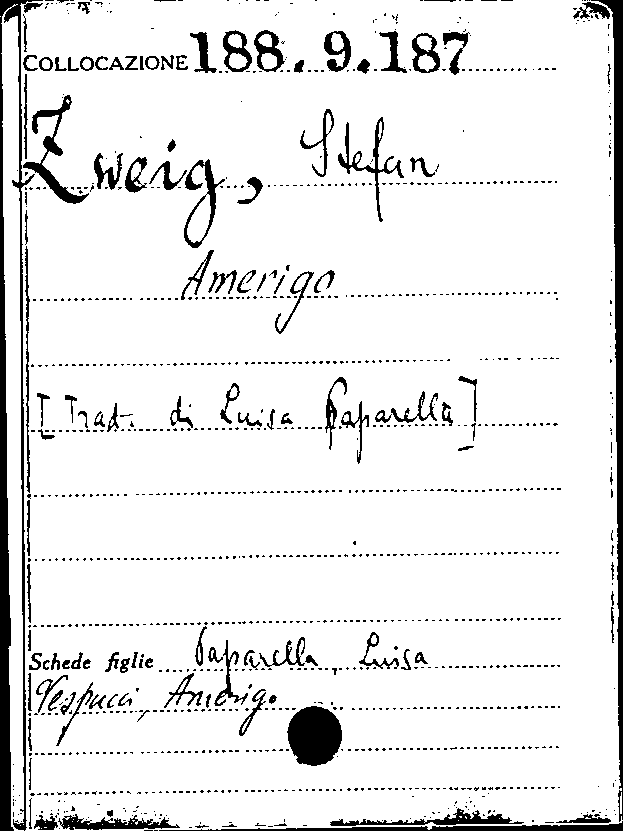 COLLOCAZIONE 188.9.187
Zweig, Stefan
Amerigo
[Trad. di Luisa Paparella]
Schede figlie Paparella, Luisa
Vespucci, Amerigo